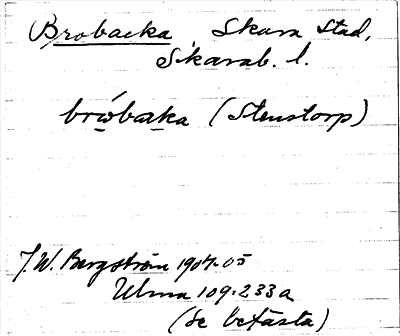 Brobacka Skara Stad,
Skarab. l.
brωbaka (Stenstorp)
J.W. Bergström 1904-05
Ulma 109:233a
(se betästa)